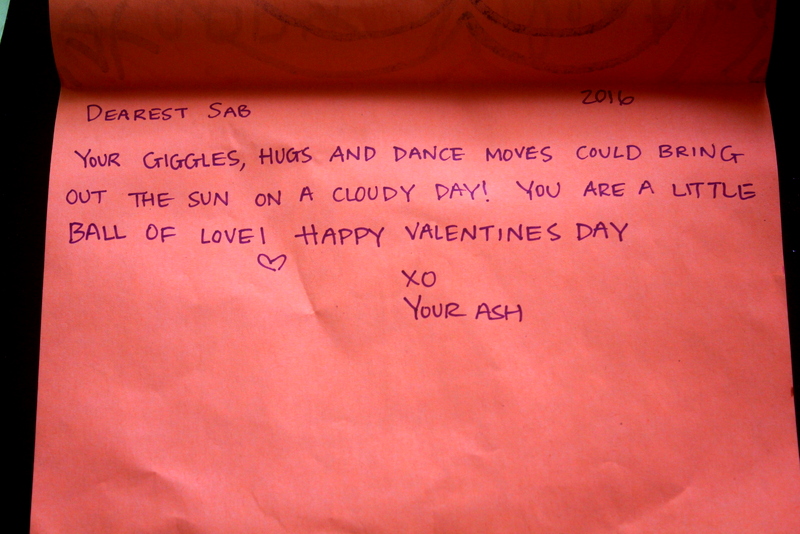 DEAREST SAB 2016
YOUR GIGGLES, HUGS AND DANCE MOVES COULD BRING
OUT THE SUN ON A CLOUDY DAY! YOU ARE A LITTLE
BALL OF LOVE! HAPPY VALENTINES DAY
XO
YOUR ASH